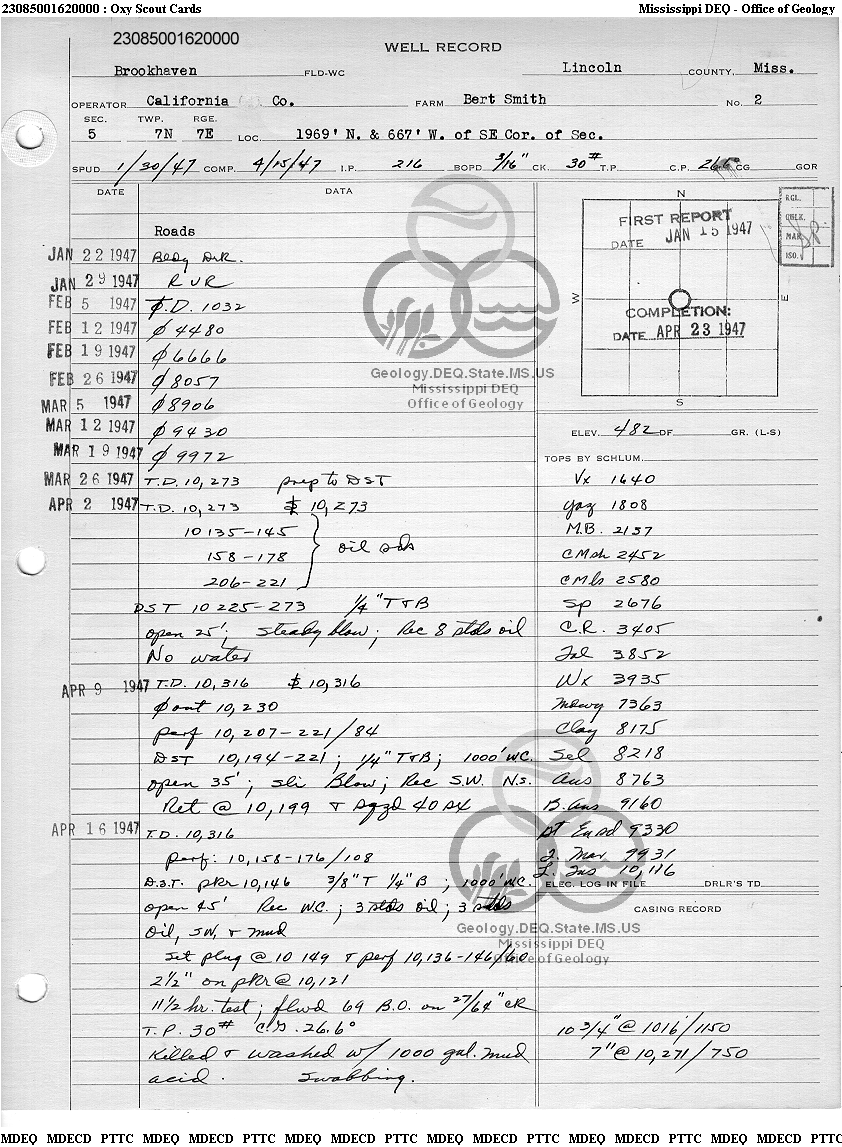 23085001620000 : Oxy Scout Cards Mississippi DEQ - Office of Geology
23085001620000
WELL RECORD
Brookhaven FLD-WC Lincoln COUNTY, Miss.
OPERATOR California Co. FARM Bert Smith No. 2
SEC. TWP. RGE.
5 7N 7E LOC. 1969' N. & 667' W. of SE Cor. of Sec.
SPUD 1/30/47 COMP. 4/15/47 I.P. 216 BOPD 3/16" CK. 30# T.P. C.P. 26.6° CG GOR
DATE DATA
Roads
JAN 22 1947 Bldg Drk.
JAN 29 1947 R U R
FEB 5 1947 T.D. 1032
FEB 12 1947 ϕ 4480
FEB 19 1947 ϕ 6666
FEB 26 1947 ϕ 8057
MAR 5 1947 ϕ 8906
MAR 12 1947 ϕ 9430
MAR 19 1947 ϕ 9972
MAR 26 1947 T.D. 10,273 prep to DST
APR 2 1947 T.D. 10,273 $ 10,273
10135-145
158-178 oil sds
206-221
DST 10225-273 1/4" T&B
open 25'; steady blow; Rec 8 stds oil
No water
APR 9 1947 T.D. 10,316 $ 10,316
ϕ out 10,230
perf 10,207-221/84
DST 10,194-221; 1/4" T&B; 1000' WC.
open 35'; sli Blow; Rec S.W. N.S.
Ret @ 10,199 & sqzd 40 sx
APR 16 1947 T.D. 10,316
perf: 10,158-176/108
D.S.T. pkr 10,146 3/8" T 1/4" B; 1000' WC.
open 45' Rec W.C.; 3 stds oil; 3 stds
oil, SW. & mud
Set plug @ 10 149 & perf 10,136-146/60
2 1/2" on pkr @ 10,121
11 1/2 hr. test; flwd 69 B.O. on 27/64" CK
T.P. 30# C.G. 26.6°
Killed & washed w/ 1000 gal. mud
acid. Swabbing.
N
FIRST REPORT
DATE JAN 15 1947
W E
COMPLETION:
DATE APR 23 1947
S
RGL.
CHLK.
MAR
ISO.
ELEV. 482 DF. GR. (L-S)
TOPS BY SCHLUM.
Vx 1640
Yaz 1808
M.B. 2137
CMsh 2452
CMls 2580
Sp 2676
C.R. 3405
Tal 3852
Wx 3935
Mdwy 7363
Clay 8175
Sel 8218
Aus 8763
B. Aus 9160
9330
L. Mar 9931
L. Tus 10,116
ELEC. LOG IN FILE DRLR'S TD
CASING RECORD
10 3/4" @ 1016'/1150
7" @ 10,271/750
Geology.DEQ.State.MS.US
Mississippi DEQ
Office of Geology
Geology.DEQ.State.MS.US
Mississippi DEQ
Office of Geology
MDEQ MDECD PTTC MDEQ MDECD PTTC MDEQ MDECD PTTC MDEQ MDECD PTTC MDEQ MDECD PTTC